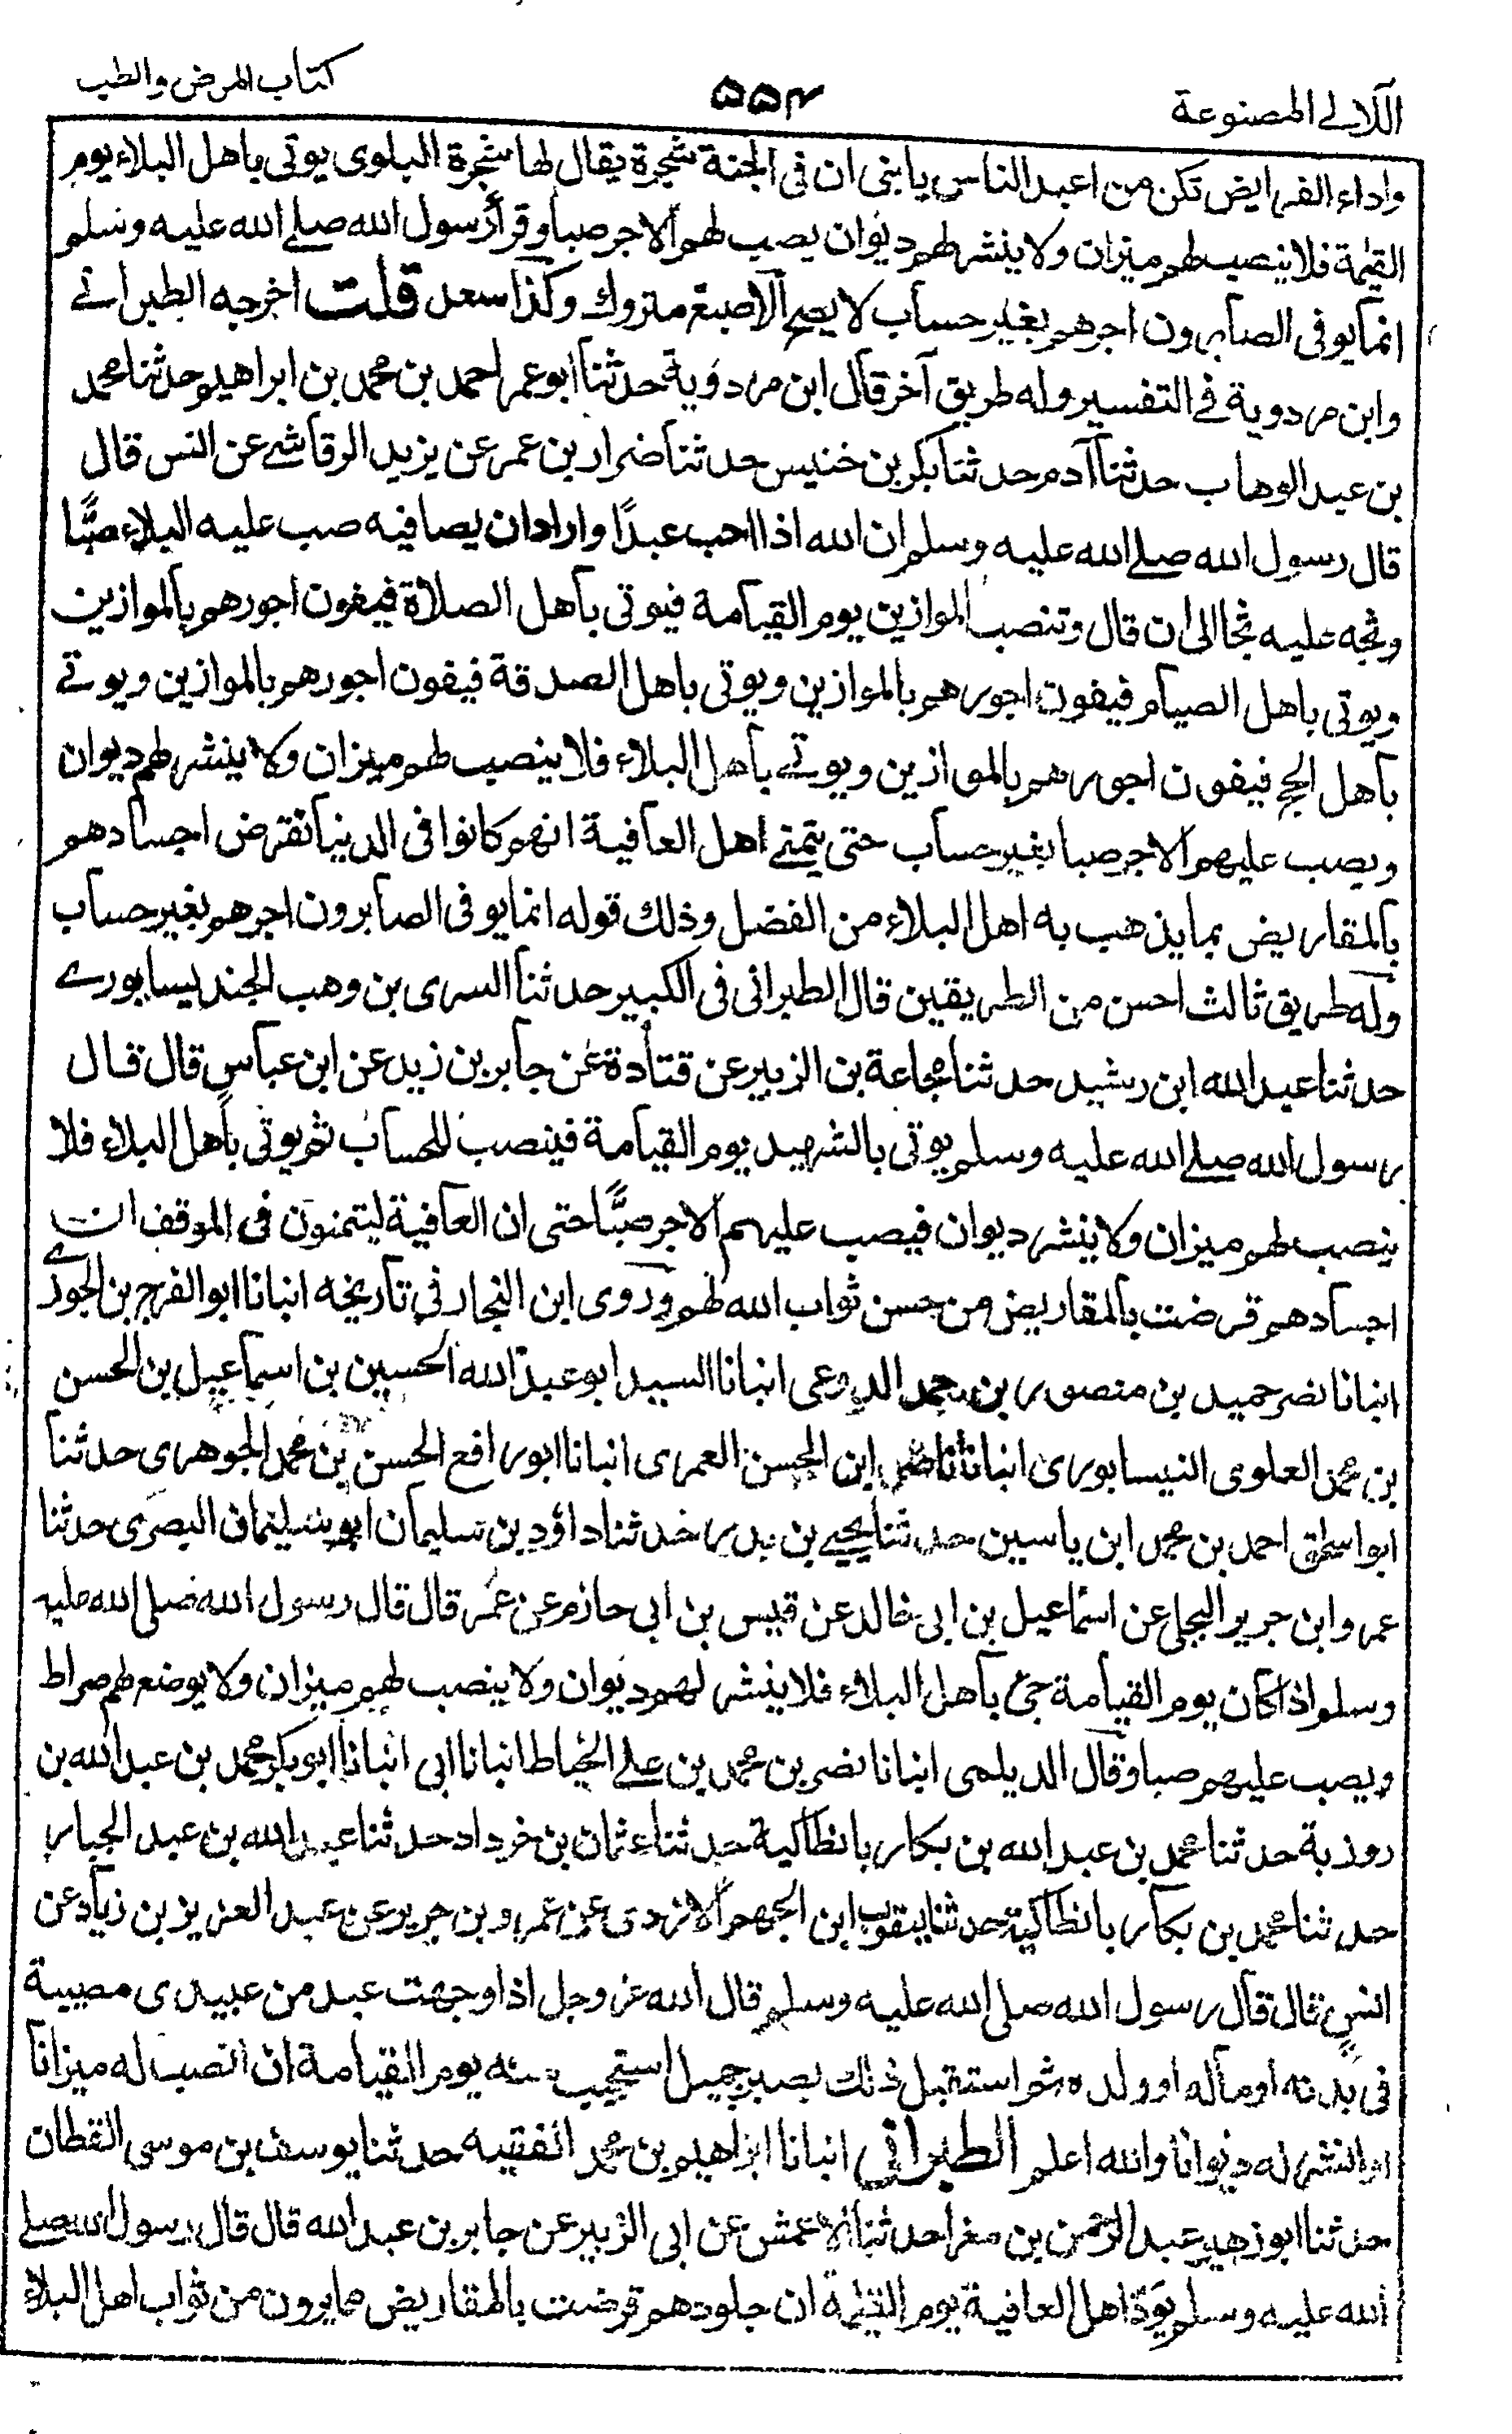 اللآلے المصنوعة
۵۵۴
كتاب المرض والطب
واداء الفرايض تكن من اعبد الناس يا بنى ان فى الجنة شجرة يقال لها شجرة البلوى يوتى باهل البلاء يوم
القيمة فلا ينصب لهم ميزان ولا ينشر لهم ديوان يصب لهم الاجر صبا وقرأ رسول الله صلے الله عليه وسلم
انما يوفى الصابرون اجرهم بغير حساب لا يصح الاصبغ متروك وكذا سعد قلت اخرجه الطبرانے
وابن مردوية فے التفسير وله طريق آخر قال ابن مردوية حدثنا ابو عمر احمد بن محمد بن ابراهيم حدثنا محمد
بن عبد الوهاب حدثنا آدم حدثنا بكر بن خنيس حدثنا ضرار بن عمر عن يزيد الرقاشے عن انس قال
قال رسول الله صلے الله عليه وسلم ان الله اذا احب عبدًا واراد ان يصافيه صب عليه البلاء صبًّا
وثجه عليه ثجا الى ان قال وتنصب الموازين يوم القيامة فيوتى باهل الصلاة فيفون اجورهم بالموازين
ويوتى باهل الصيام فيفون اجورهم بالموازين ويوتى باهل الصدقة فيفون اجورهم بالموازين ويوتے
باهل الحج فيفون اجورهم بالموازين ويوتے باهل البلاء فلا ينصب لهم ميزان ولا ينشر لهم ديوان
ويصب عليهم الاجر صبا بغير حساب حتى يتمنے اهل العافية انهم كانوا فى الدنيا تقرض اجسادهم
بالمقاريض بما يذهب به اهل البلاء من الفضل وذلك قوله انما يوفى الصابرون اجرهم بغير حساب
وله طريق ثالث احسن من الطريقين قال الطبرانى فى الكبير حدثنا السرى بن وهب الجنديسابورے
حدثنا عبد الله ابن رشيد حدثنا مجاعة بن الزبير عن قتادة عن جابر بن زيد عن ابن عباس قال قال
رسول الله صلے الله عليه وسلم يوتى بالشهيد يوم القيامة فينصب للحساب ثم يوتى باهل البلاء فلا
ينصب لهم ميزان ولا ينشر ديوان فيصب عليهم الاجر صبًّا حتى ان العافية ليتمنون فى الموقف ان
اجسادهم قرضت بالمقاريض من حسن ثواب الله لهم وروى ابن النجار فى تاريخه انبانا ابو الفرج بن الجوزے
انبانا نصر حميد بن منصور بن محمد انبانا السيد ابو عبد الله الحسين بن اسماعيل بن الحسن
بن محمد العلوى النيسابورى انبانا ابن الحسن العمرى انبانا ابو رافع الحسن بن محمد الجوهرى حدثنا
ابو اسحٰق احمد بن محمد ابن ياسين حدثنا يحيے بن بدر حدثنا داؤد بن سليمان ابو سليمان البصرى حدثنا
عمر وابن جرير البجلى عن اسماعيل بن ابى خالد عن قيس بن ابى حازم عن عمر قال قال رسول الله صلى الله عليه
وسلم اذا كان يوم القيامة جئ باهل البلاء فلا ينشر لهم ديوان ولا ينصب لهم ميزان ولا يوضع لهم صراط
ويصب عليهم صبا وقال الديلمى انبانا نصر بن محمد بن علے الخياط انبانا ابى انبانا ابو بكر محمد بن عبد الله بن
روزبة حدثنا محمد بن عبد الله بن بكار بانطاكية حدثنا عثمان بن خرداد حدثنا عبد الله بن عبد الجبار
حدثنا محمد بن بكار بانطاكية حدثنا يعقوب ابن الجهم الازدى عن عمرو بن جرير عن عبد العزيز بن زياد عن
انس قال قال رسول الله صلى الله عليه وسلم قال الله عز وجل اذا وجهت عبد من عبيدى مصيبة
فى بدنه او ماله او ولده ثم استقبل ذلك بصبر جميل استحييت منه يوم القيامة ان انصب له ميزانا
او انشر له ديوانا والله اعلم الطبرانى انبانا ابراهيم بن محمد الفقيه حدثنا يوسف بن موسى القطان
حدثنا ابو زهير عبد الرحمن بن مغرا حدثنا الاعمش عن ابى الزبير عن جابر بن عبد الله قال قال رسول الله صلے
الله عليه وسلم يودّ اهل العافية يوم القيٰمة ان جلودهم قرضت بالمقاريض مما يرون من ثواب اهل البلاء